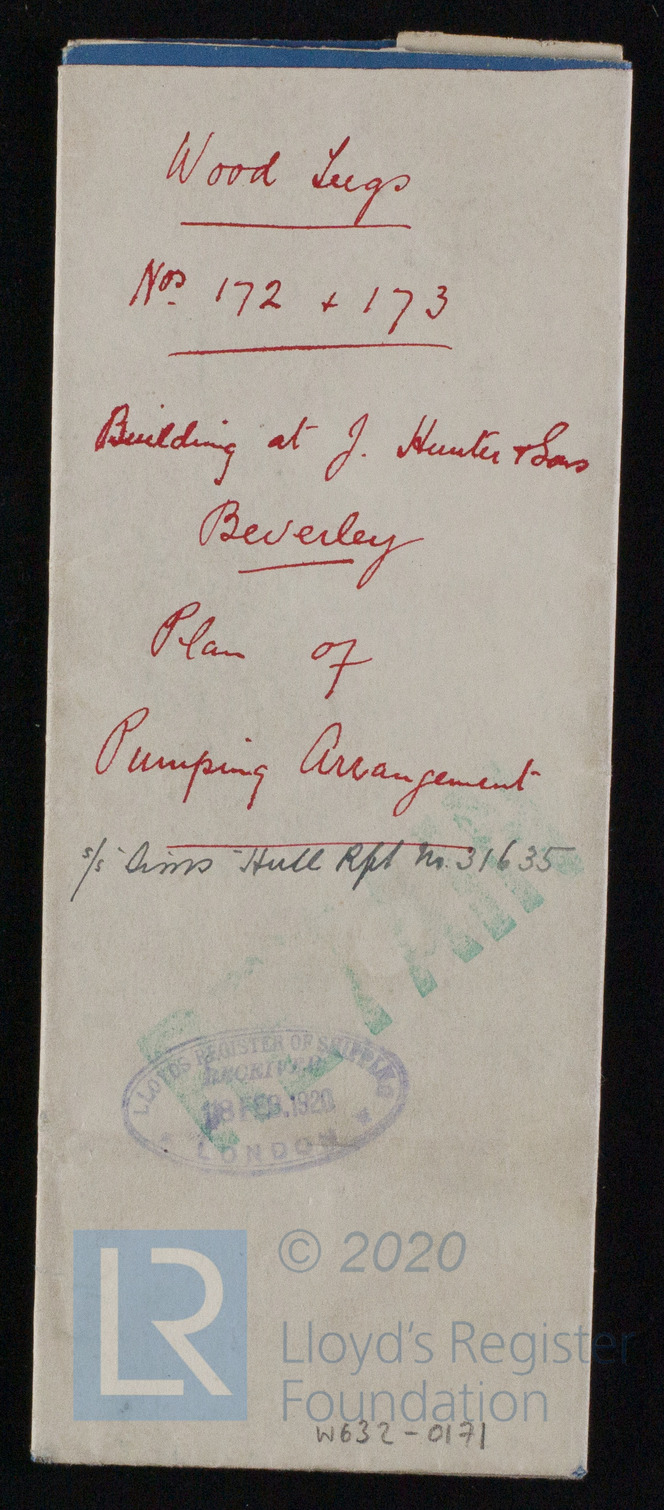 Wood Tugs
Nos. 172 + 173
Building at J. Hunter & Sons
Beverley
Plan of
Pumping Arrangement
s/s Hull Rpt No. 31635
LLOYDS REGISTER OF SHIPPING
RECEIVED
18 FEB. 1920
LONDON
© 2020
LR
Lloyd's Register
Foundation
W632-0171